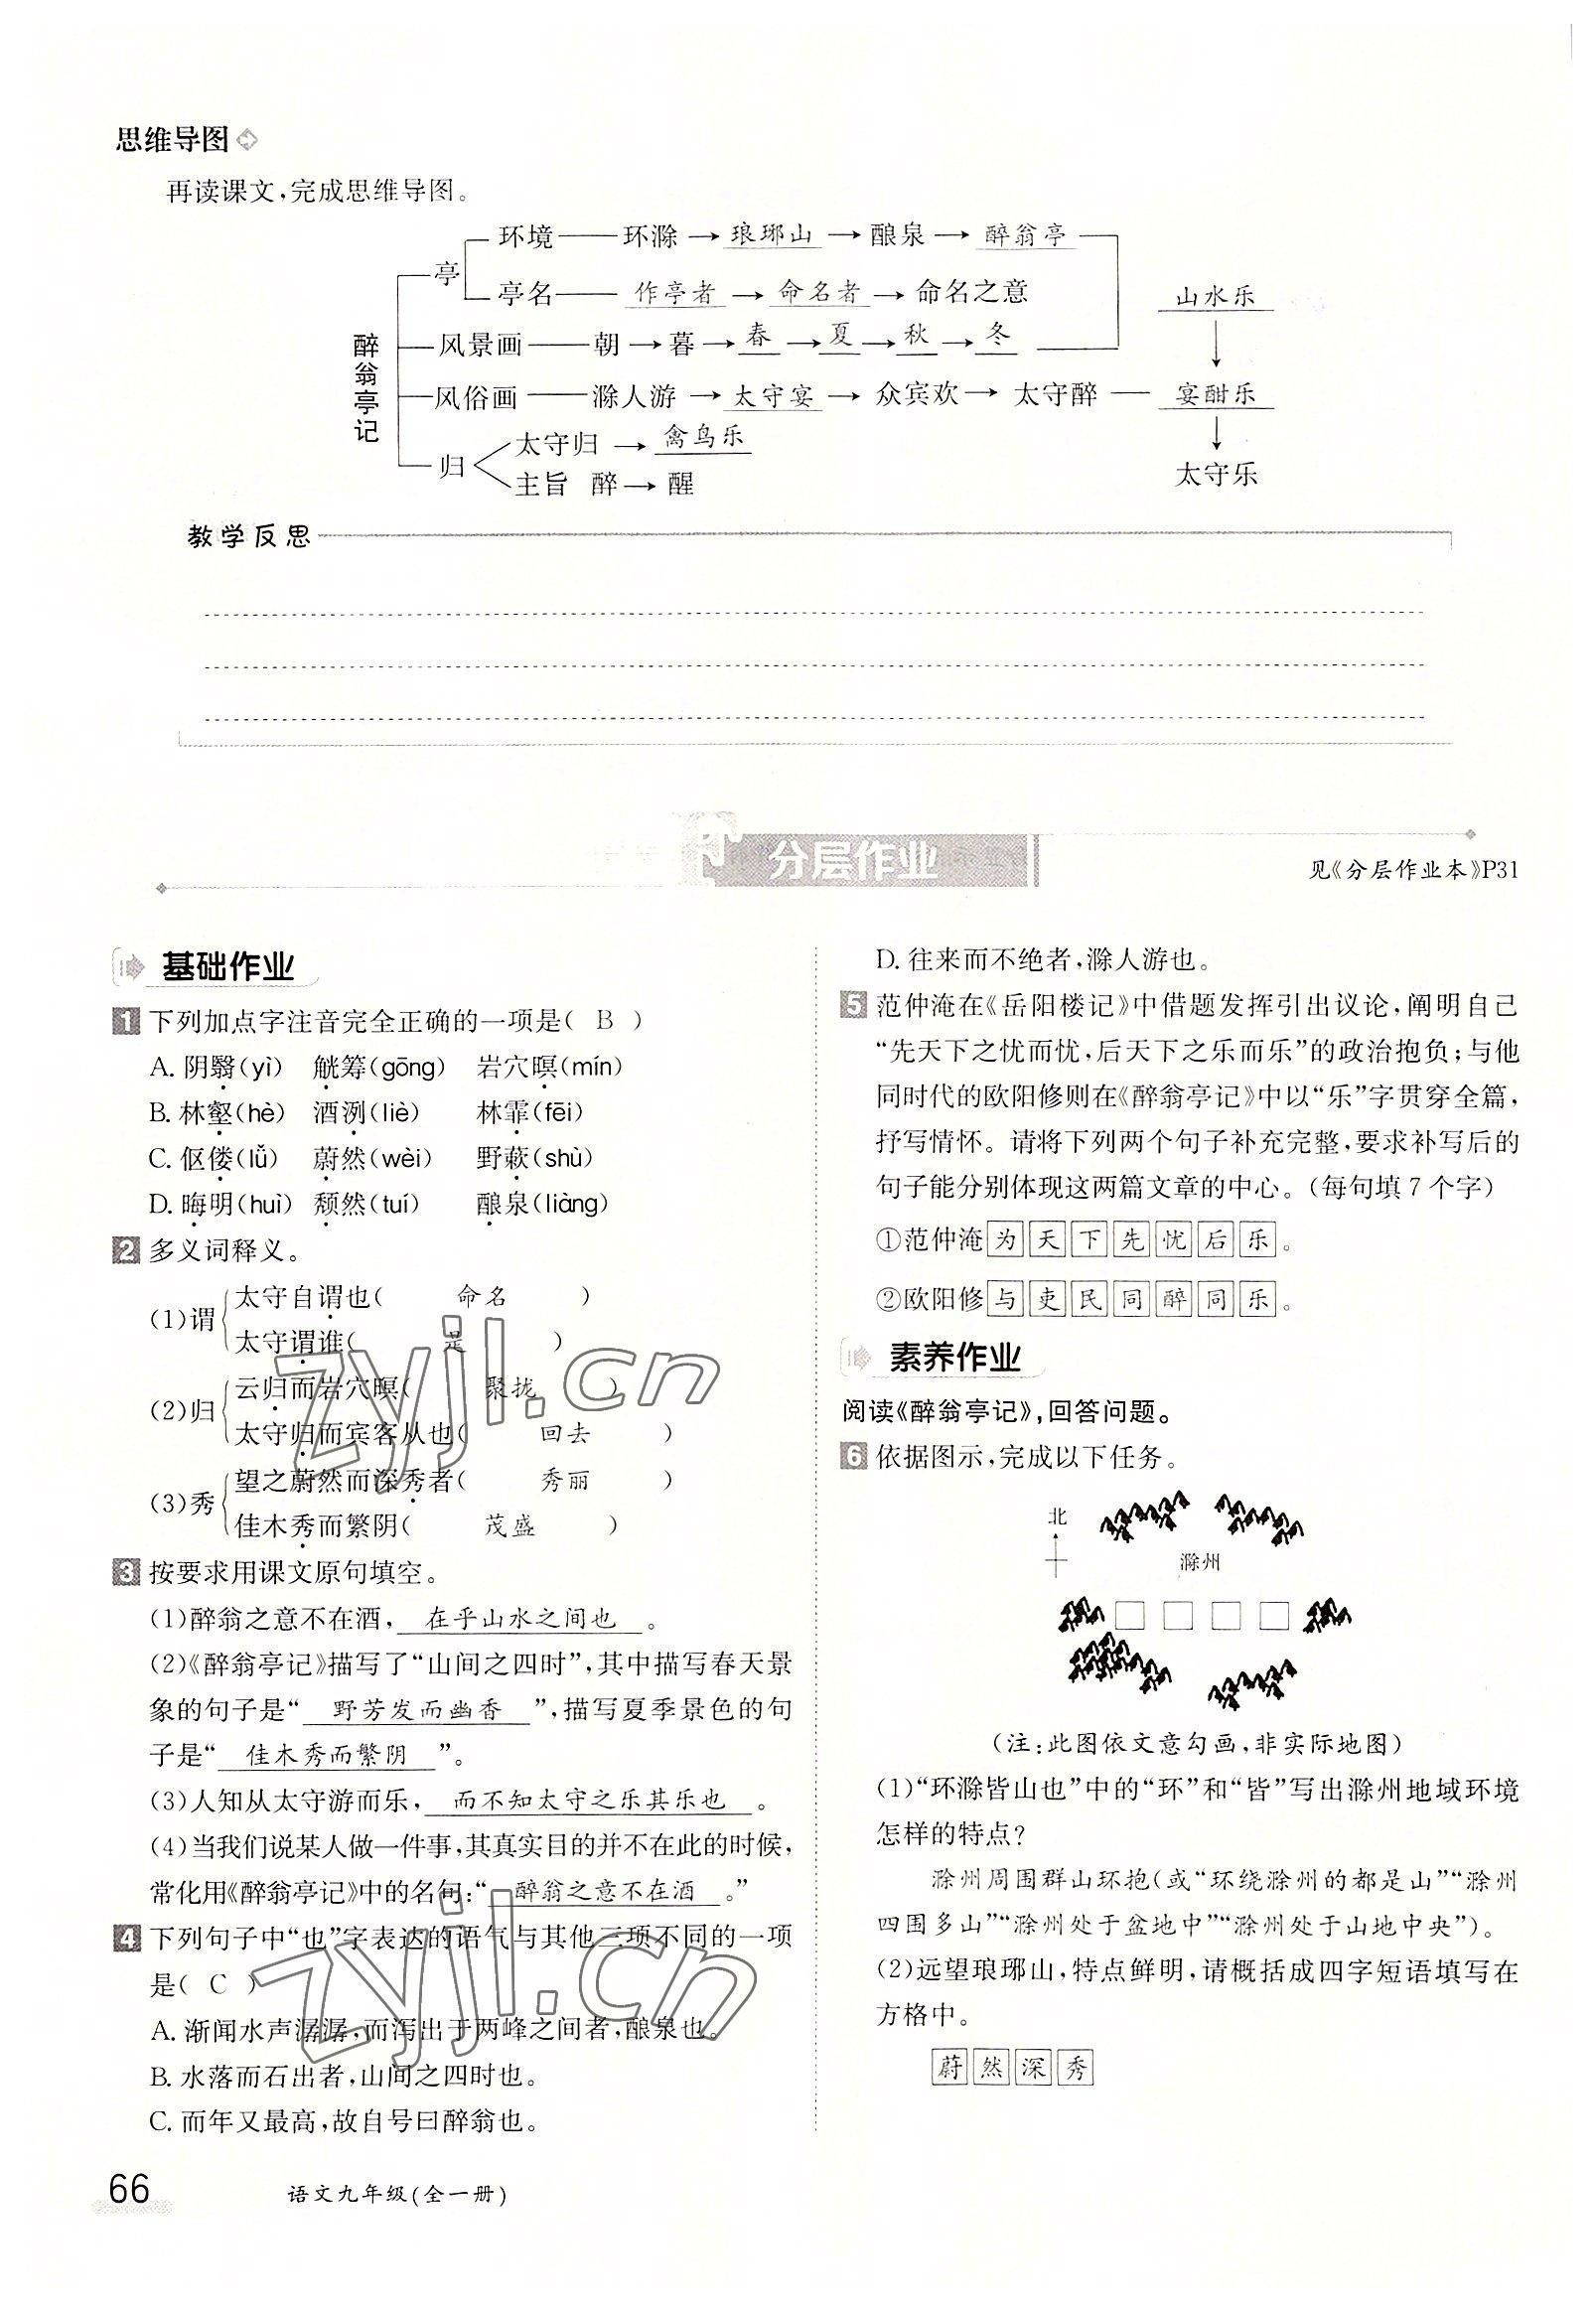 思维导图
再读课文,完成思维导图。
醉翁亭记
亭
环境——环滁→琅琊山→酿泉→醉翁亭
亭名——作亭者→命名者→命名之意
山水乐
风景画——朝→暮→春→夏→秋→冬
风俗画——滁人游→太守宴→众宾欢→太守醉——宴酣乐
归
太守归→禽鸟乐
主旨 醉→醒
太守乐
教学反思
分层作业
见《分层作业本》P31
基础作业
1 下列加点字注音完全正确的一项是( B )
A. 阴翳(yì) 觥筹(gōng) 岩穴暝(mín)
B. 林壑(hè) 酒洌(liè) 林霏(fēi)
C. 伛偻(lǚ) 蔚然(wèi) 野蔌(shù)
D. 晦明(huì) 颓然(tuí) 酿泉(liàng)
2 多义词释义。
(1)谓
太守自谓也( 命名 )
太守谓谁( 是 )
(2)归
云归而岩穴暝( 聚拢 )
太守归而宾客从也( 回去 )
(3)秀
望之蔚然而深秀者( 秀丽 )
佳木秀而繁阴( 茂盛 )
3 按要求用课文原句填空。
(1)醉翁之意不在酒, 在乎山水之间也 。
(2)《醉翁亭记》描写了“山间之四时”,其中描写春天景
象的句子是“ 野芳发而幽香 ”,描写夏季景色的句
子是“ 佳木秀而繁阴 ”。
(3)人知从太守游而乐, 而不知太守之乐其乐也 。
(4)当我们说某人做一件事,其真实目的并不在此的时候,
常化用《醉翁亭记》中的名句:“ 醉翁之意不在酒 。”
4 下列句子中“也”字表达的语气与其他三项不同的一项
是( C )
A. 渐闻水声潺潺,而泻出于两峰之间者,酿泉也。
B. 水落而石出者,山间之四时也。
C. 而年又最高,故自号曰醉翁也。
D. 往来而不绝者,滁人游也。
5 范仲淹在《岳阳楼记》中借题发挥引出议论,阐明自己
“先天下之忧而忧,后天下之乐而乐”的政治抱负;与他
同时代的欧阳修则在《醉翁亭记》中以“乐”字贯穿全篇,
抒写情怀。请将下列两个句子补充完整,要求补写后的
句子能分别体现这两篇文章的中心。(每句填7个字)
①范仲淹为天下先忧后乐。
②欧阳修与吏民同醉同乐。
素养作业
阅读《醉翁亭记》,回答问题。
6 依据图示,完成以下任务。
北
滁州
(注:此图依文意勾画,非实际地图)
(1)“环滁皆山也”中的“环”和“皆”写出滁州地域环境
怎样的特点?
滁州周围群山环抱(或“环绕滁州的都是山”“滁州
四围多山”“滁州处于盆地中”“滁州处于山地中央”)。
(2)远望琅琊山,特点鲜明,请概括成四字短语填写在
方格中。
蔚然深秀
66
语文九年级(全一册)
zyjl.cn
zyjl.cn